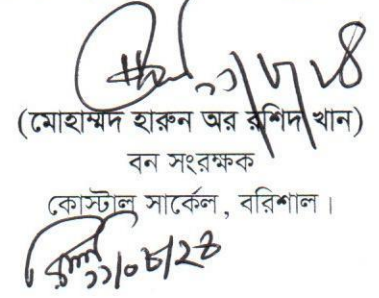 ১১/৮/২৪
(মোহাম্মদ হারুন অর রশিদ খান)
বন সংরক্ষক
কোস্টাল সার্কেল, বরিশাল।
১১/০৮/২৪